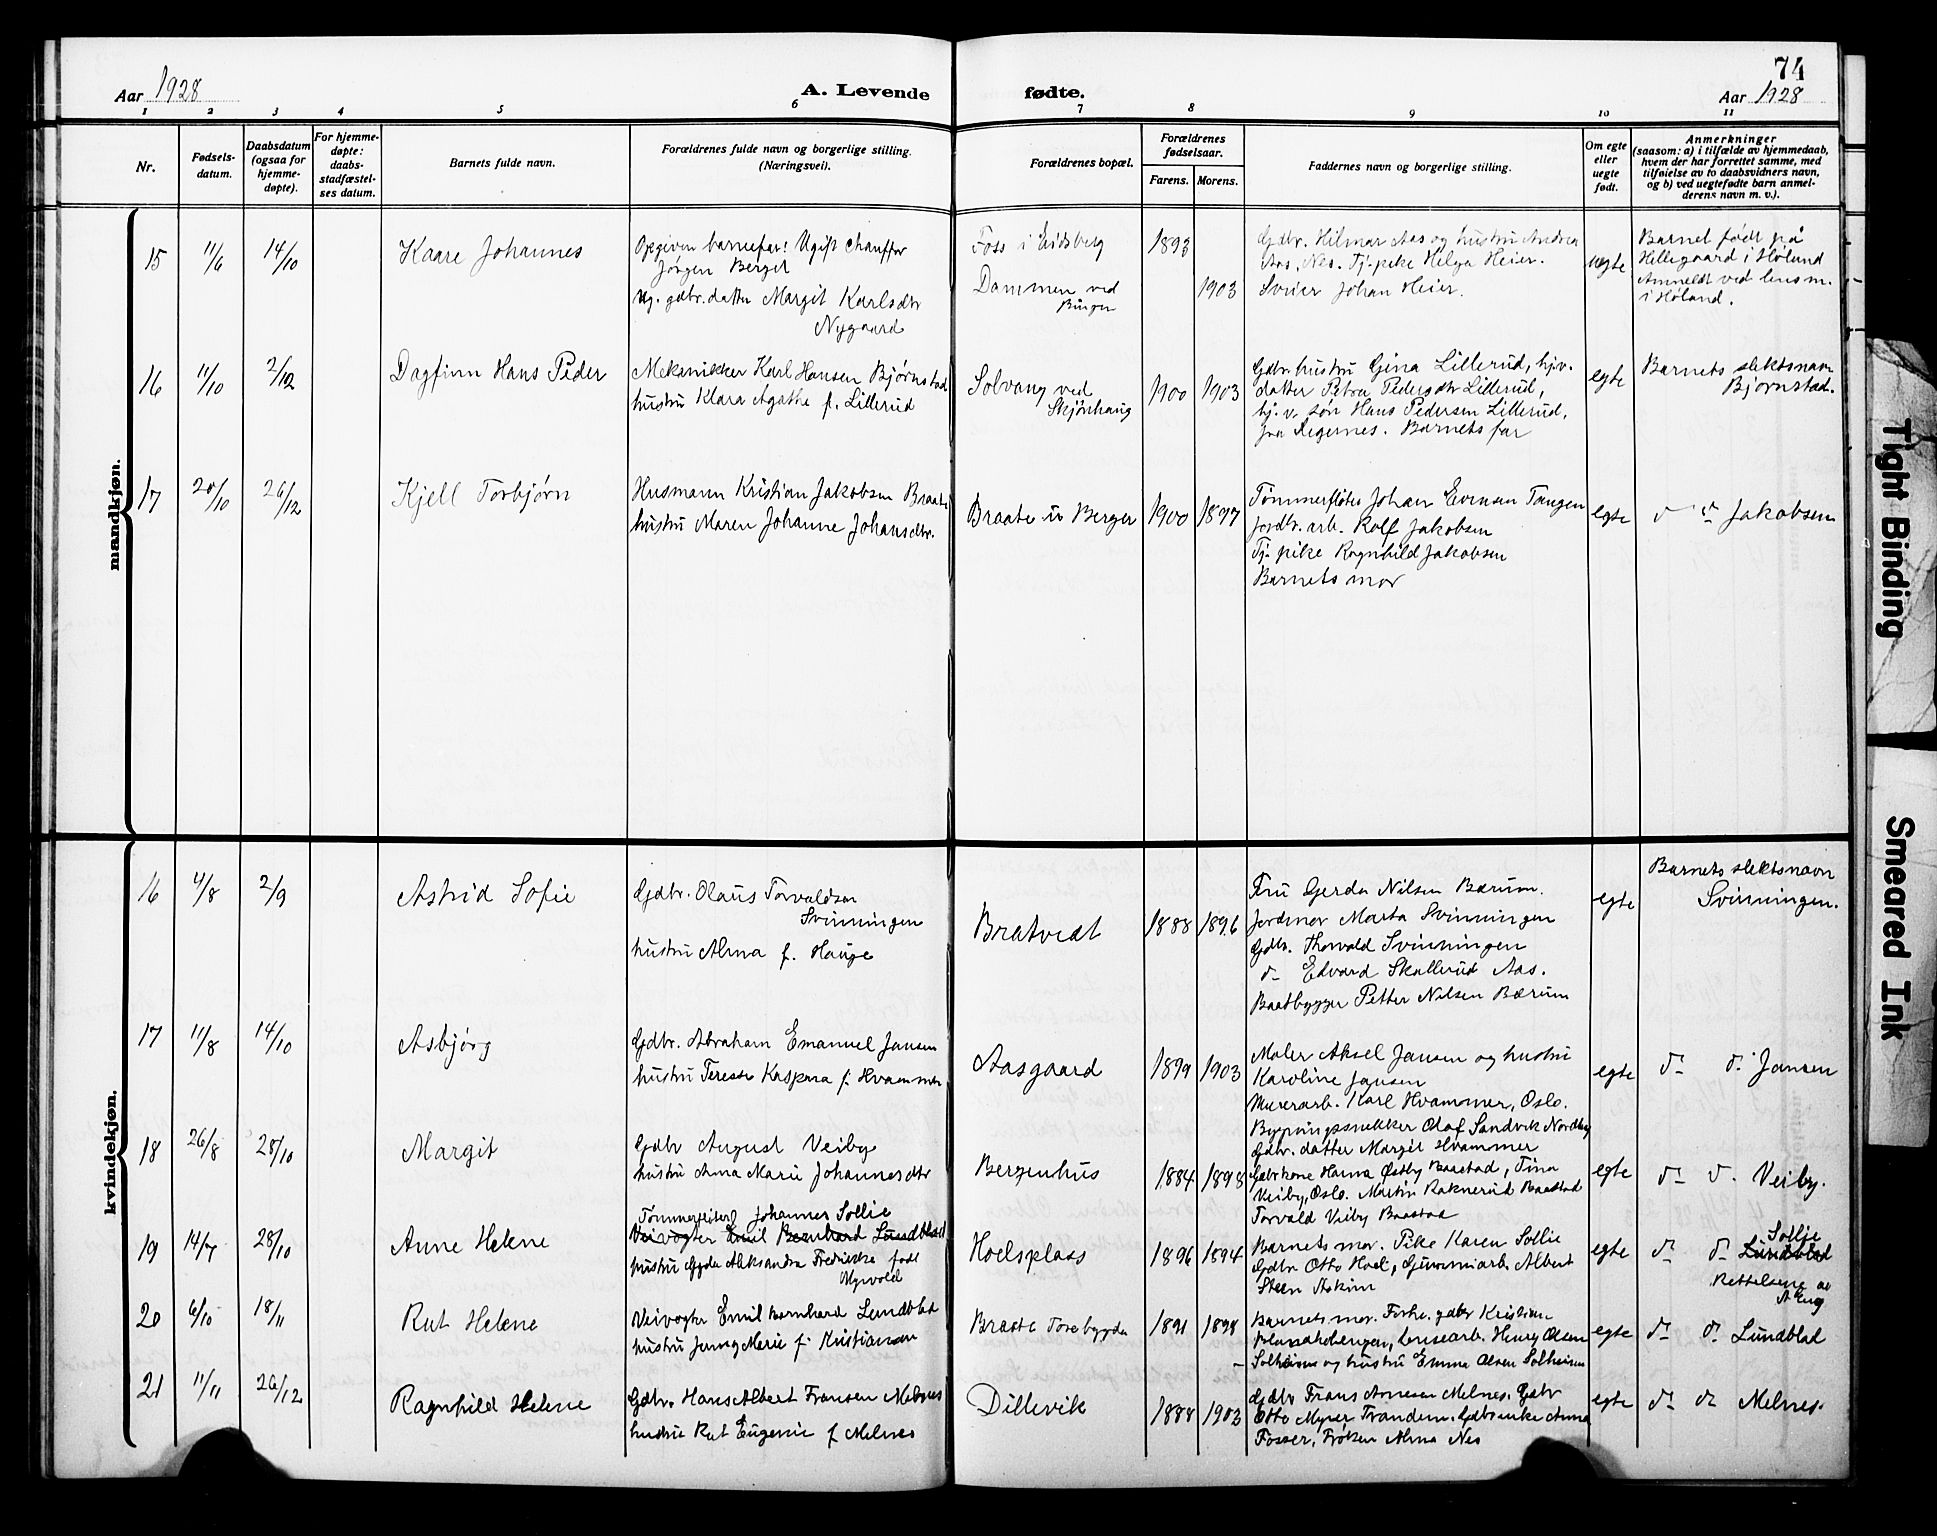 74
Aar 1928
A. Levende
fødte.
Aar 1928
1 2 3 4 5 6 7 8 9 10 11
Nr.
Fødsels-
datum.
Daabsdatum
(ogsaa for
hjemme-
døpte).
For hjemme-
døpte:
daabs-
stadfæstel-
ses datum.
Barnets fulde navn.
Forældrenes fulde navn og borgerlige stilling.
(Næringsvei).
Forældrenes bopæl.
Forældrenes
fødselsaar.
Farens. Morens.
Faddernes navn og borgerlige stilling.
Om egte
eller
uegte
født.
Anmerkninger
(saasom: a) i tilfælde av hjemmedaab,
hvem der har forrettet samme, med
tilføielse av to daabsvidners navn,
og b) ved uegtefødte barn anmel-
derens navn m. v.).
mandkjøn.
15 11/6 14/10
Kaare Johannes
Opgiven barnefar: Ugift chauffør
Jørgen Berget
Ug. gdbr. datter Margit Karlsdtr
Nygaard
Foss i Eidsberg
Dammen ved
Burger
1893
1903
Gdbr. Hilmar Aas og hustru Andrea
Aas, Nes. Tj. pike Helga Heier.
Sveier Johan Heier.
uegte
Barnet født på
Hellegaard i Høland
Anmeldt ved lensm.
i Høland.
16 11/10 2/12
Dagfinn Hans Peder
Mekanikker Karl Hansen Bjørnstad
hustru Klara Agathe f. Lillerud
Solvang ved
Skjønhaug
1900 1903
Gdbr. hustru Gina Lillerud, hjv.
datter Petra Pedersdtr Lillerud,
hj. v. søn Hans Pedersen Lillerud,
fra Degernes. Barnets far
egte
Barnets slektsnavn
Bjørnstad.
17 20/10 26/12
Kjell Torbjørn
Husmann Kristian Jakobsen Braate
hustru Maren Johanne Johansdtr.
Braate u Berger
1900 1897
Tømmerfløter Johan Evensen Tangen
jordbr. arb. Rolf Jakobsen
Tj. pike Ragnhild Jakobsen
Barnets mor
egte
d- d- Jakobsen
kvindekjøn.
16 4/8 2/9
Astrid Sofie
Gdbr. Olaus Torvaldsen
Svinningen
hustru Alma f. Hauge
Bratvedt
1888 1896
Fru Gerda Nilsen Bærum.
Jordmor Marta Svinningen
Gdbr. Thorvald Svinningen
d- Edvard Skallerud Aas.
Baatbygger Petter Nilsen Bærum
egte
Barnets slektsnavn
Svinningen.
17 11/8 14/10
Asbjørg
Gdbr. Abraham Emanuel Jansen
hustru Terese Kaspara f. Hvammer
Aasgaard
1899 1903
Maler Aksel Jansen og hustru
Karoline Jansen
Murerarb. Karl Hvammer, Oslo.
Bygningssnekker Olaf Sandvik Nordby
Gdbr. datter Margit Hvammer
egte
d- d- Jansen
18 26/8 28/10
Margit
Gdbr August Veiby
hustru Anna Marie Johannesdtr
Bergenhus
1884 1898
Gdbrkone Hanna Østby Baastad, Tina
Veiby, Oslo. Martin Raknerud Baastad
Torvald Veiby Baastad
egte
d- d- Veiby.
19 14/7 28/10
Anne Helene
Tømmerfløter Johannes Sollie
Veivogter Emil Bernhard Lundblad
hustru Gyda Aleksandra Fredrikke født
Myrvold
Hoelsplass
1896 1894
Barnets mor. Pike Karen Sollie
Gdbr Otto Hoel, Gummiarb. Albert
Steen Askim
egte
Sollie
d- d- Lundblad
Rettelsene av
A Eng
20 6/10 18/11
Rut Helene
Veivogter Emil Bernhard Lundblad
hustru Jenny Marie f. Kristiansen
Braate Torebygda
1891 1898
Barnets mor. Forh. gdbr Kristian
Blanakebergen, Lensearb. Henry Olsen
Solheim og hustru Emma Olsen Solheim
egte
d- d- Lundblad
21 11/11 26/12
Ragnhild Helene
Gdbr. Hans Albert Fransen Melnes
hustru Rut Eugenie f Melnes
Dillevik
1888 1902
Gdbr Frans Arnesen Melnes. Gdbr
Otto Myrer Trandem. Gdbr.enke Anna
Fosser, Frøken Alma Nes
egte
d- d- Melnes.
Tight Binding
Smeared Ink